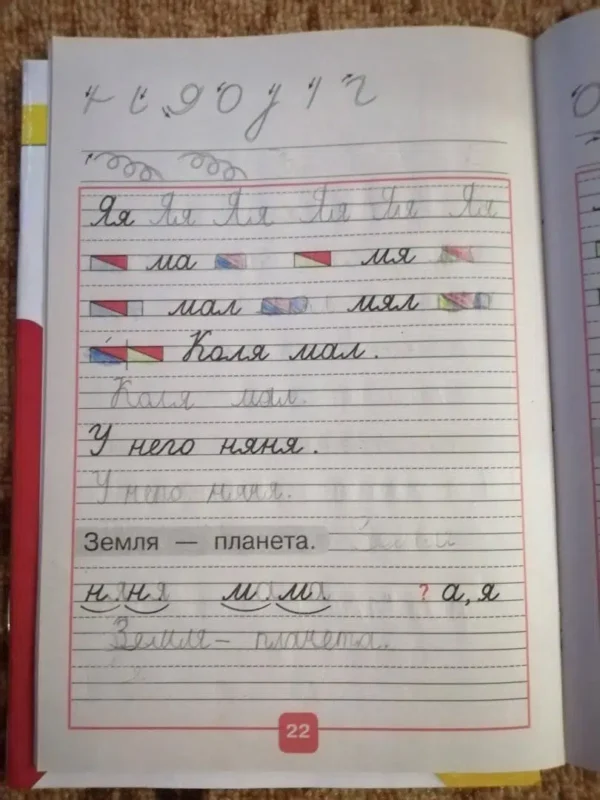 Яя Яя Яя Яя Яя Яя
ма мя
мал мял
Коля мал.
Коля мал.
У него няня.
У него няня.
Земля — планета.
няня мама ? а, я
Земля – планета.
22